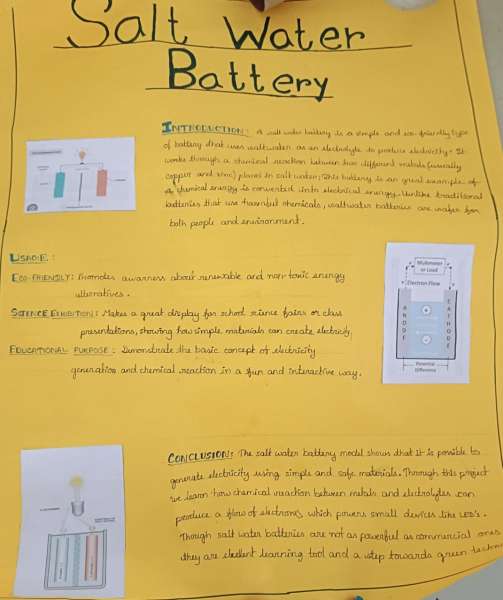 Salt Water
Battery
INTRODUCTION: A salt water battery is a simple and eco-friendly type
of battery that uses saltwater as an electrolyte to produce electricity. It
works through a chemical reaction between two different metals (usually
copper and zinc) placed in salt water; This battery is an great example of
chemical energy is converted into electrical energy. Unlike traditional
batteries that use harmful chemicals, saltwater batteries are safer for
both people and environment.
USAGE:
ECO-FRIENDLY: Promotes awarness about renewable and non-toxic energy
alternatives.
SCIENCE EXHIBITION: Makes a great display for school science fairs or class
presentations, showing how simple materials can create electricity.
EDUCATIONAL PURPOSE: Demonstrate the basic concept of electricity
generation and chemical reaction in a fun and interactive way.
Multimeter
or Load
Electron Flow
ANODE
CATHODE
+
-
Potential
Difference
CONCLUSION: The salt water battery model shows that it is possible to
generate electricity using simple and safe materials. Through this project
we learn how chemical reaction between metals and electrolytes can
produce a flow of electrons, which powers small devices like LED's.
Though salt water batteries are not as powerful as commercial ones
they are excellent learning tool and a step towards green